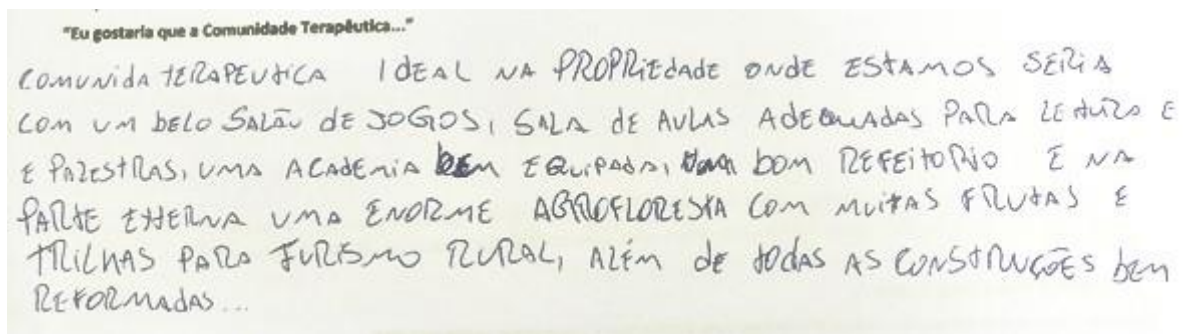 "Eu gostaria que a Comunidade Terapêutica..."
COMUNIDA TERAPEUTICA IDEAL NA PROPRIEDADE ONDE ESTAMOS SERIA
COM UM BELO SALÃO DE JOGOS, SALA DE AULAS ADEQUADAS PARA LEITURA E
E PALESTRAS, UMA ACADEMIA BEM EQUIPADA, BOM REFEITORIO E NA
PARTE EXTERNA UMA ENORME AGROFLORESTA COM MUITAS FRUTAS E
TRILHAS PARA TURISMO RURAL, ALÉM DE TODAS AS CONSTRUÇÕES BEM
REFORMADAS...